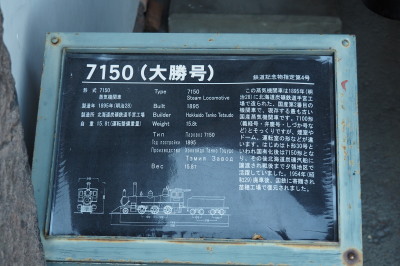 7150(大勝号)
鉄道記念物指定第4号
形 式 7150
蒸気機関車
製造年 1895年(明治28)
製造所 北海道炭礦鉄道手宮工場
自 重 15.81(運転整備重量)
Type 7150
Steam Locomotive
Built 1895
Builder Hokkaido Tanko Tetsudo
Weight 15.8t
Тип Паровоз 7150
Год постройки 1895
Вес 15.8т
この蒸気機関車は1895年(明
治28)に北海道炭礦鉄道手宮工
場で造られた、国産第2番目の
機関車で、現存する最も古い
国産蒸気機関車です。7100形
(義経号・弁慶号・しづか号な
ど)とそっくりですが、煙室や
ドーム、運転室の形などが違
います。はじめはト形30号と
いわれ国有化後は7150形とな
り、その後北海道炭礦汽船に
譲渡され戦後まで夕張地区で
活躍していました。1954年(昭
和29)廃車後、国鉄に寄贈され
苗穂工場で復元されました。